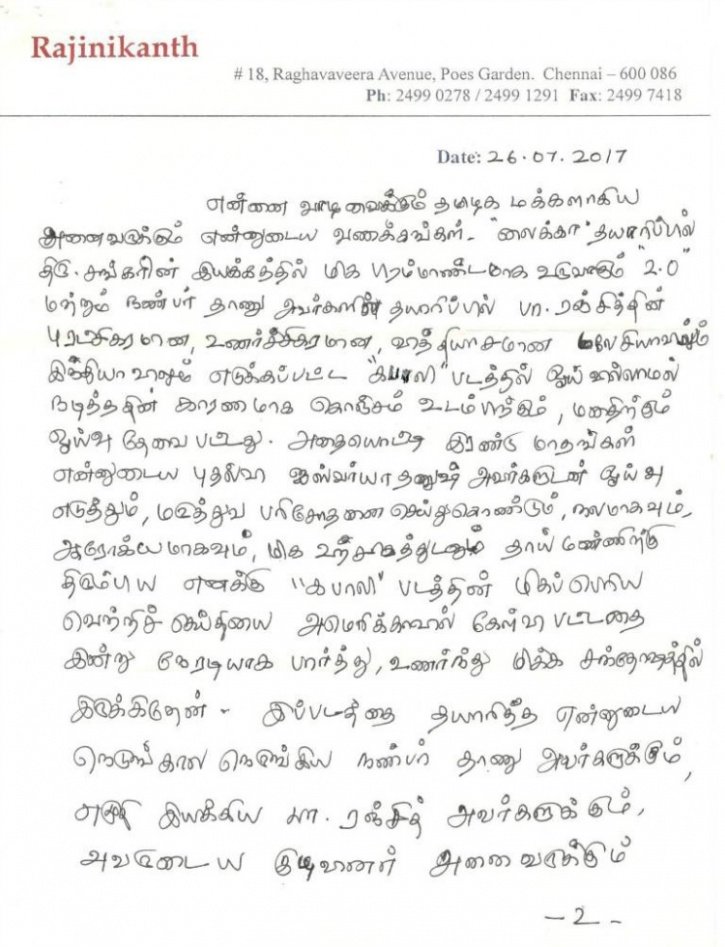 Rajinikanth
# 18, Raghavaveera Avenue, Poes Garden. Chennai – 600 086
Ph: 2499 0278 / 2499 1291 Fax: 2499 7418
Date: 26.07.2017
என்னை வாழ வைக்கும் தமிழக மக்களாகிய
அனைவருக்கும் என்னுடைய வணக்கங்கள். "லைக்கா" தயாரிப்பில்
திரு. சங்கரின் இயக்கத்தில் மிக பிரம்மாண்டமாக உருவாகும் "2.0"
மற்றும் நண்பர் தாணு அவர்களின் தயாரிப்பில் பா. ரஞ்சித்தின்
புரட்சிகரமான, உணர்ச்சிகரமான, வாத்தியாசமான மலேசியாவிலும்
இந்தியாவிலும் எடுக்கப்பட்ட "கபாலி" படத்தில் ஓய்வில்லாமல்
நடித்ததின் காரணமாக கொஞ்சம் உடம்பிற்கும், மனதிற்கும்
ஓய்வு தேவை பட்டது. அதையொட்டி இரண்டு மாதங்கள்
என்னுடைய புதல்வி ஐஸ்வர்யா தனுஷ் அவர்களுடன் ஓய்வு
எடுத்தும், மருத்துவ பரிசோதனை செய்துகொண்டும், நலமாகவும்,
ஆரோக்யமாகவும், மிக உற்சாகத்துடனும் தாய் மண்ணிற்கு
திரும்பிய எனக்கு "கபாலி" படத்தின் மிகப் பெரிய
வெற்றிச் செய்தியை அமெரிக்காவில் கேள்வி பட்டதை
இன்று நேரடியாக பார்த்து, உணர்ந்து மிக்க சந்தோஷத்தில்
இருக்கிறேன். இப்படத்தை தயாரித்த என்னுடைய
நெடுங்கால நெருங்கிய நண்பர் தாணு அவர்களுக்கும்,
எழுதி இயக்கிய பா. ரஞ்சித் அவர்களுக்கும்,
அவருடைய குழுவினர் அனைவருக்கும்
-2-